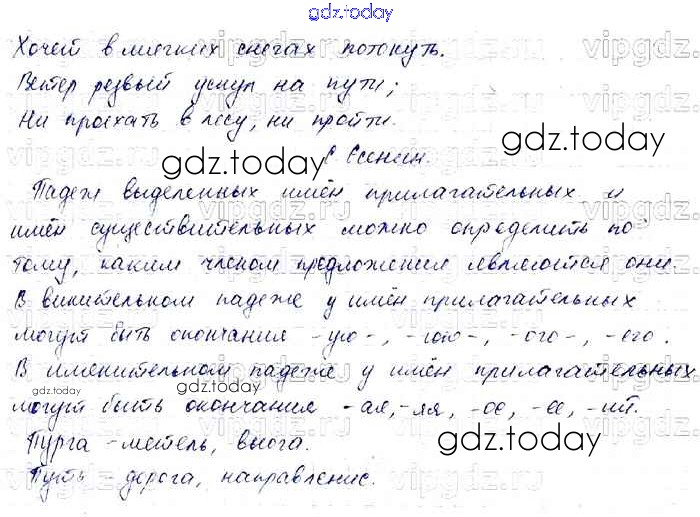 gdz.today
Хочей в мягких снегах потонуть.
Ветер резвый уснул на пути;
Ни проехать в лесу, ни пройти.
gdz.today
Есенин.
gdz.today
Падеж выделенных имён прилагательных и
имён существительных можно определить по
тому, каким членом предложения являются они.
В винительном падеже у имён прилагательных
могут быть окончания -ую-, -юю-, -ого-, -его.
В именительном падеже у имён прилагательных
gdz.today
gdz.today
могут быть окончания -ая, -яя, -ое, -ее, -ий.
Пурга - метель, вьюга.
gdz.today
Путь - дорога, направление.